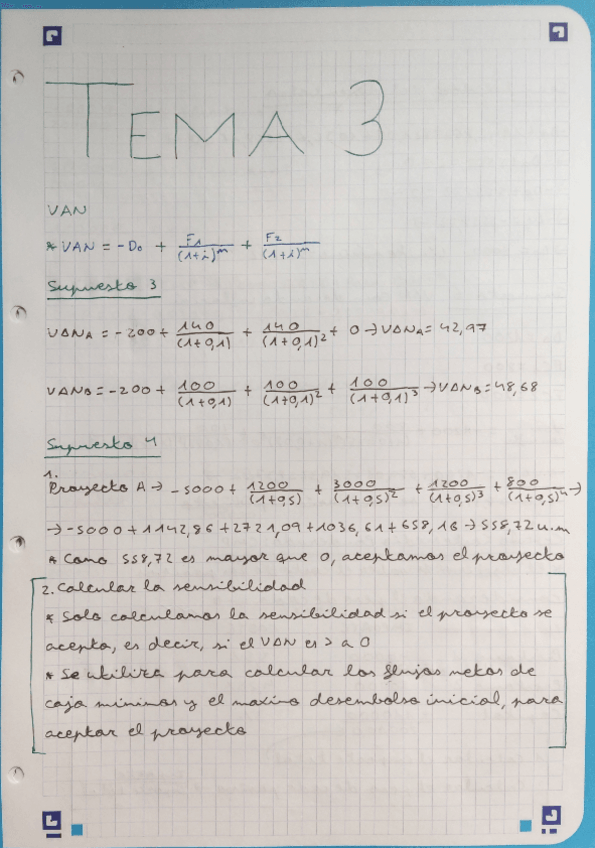 TEMA 3
VAN
* VAN = -D₀ + F1/(1+i)^m + F2/(1+i)^m
Supuesto 3
VAN_A = -200 + 140/(1+0,1) + 140/(1+0,1)² + 0 → VAN_A = 42,97
VAN_B = -200 + 100/(1+0,1) + 100/(1+0,1)² + 100/(1+0,1)³ → VAN_B = 48,68
Supuesto 4
1.
Proyecto A → -5000 + 1200/(1+0,5) + 3000/(1+0,5)² + 1200/(1+0,5)³ + 800/(1+0,5)⁴ →
→ -5000 + 1142,86 + 2721,09 + 1036,61 + 658,16 → 558,72 u.m
* Como 558,72 es mayor que 0, aceptamos el proyecto
2. Calcular la sensibilidad
* Solo calculamos la sensibilidad si el proyecto se
acepta, es decir, si el VAN es > a 0
* Se utiliza para calcular los flujos netos de
caja minimos y el maximo desembolso inicial, para
aceptar el proyecto